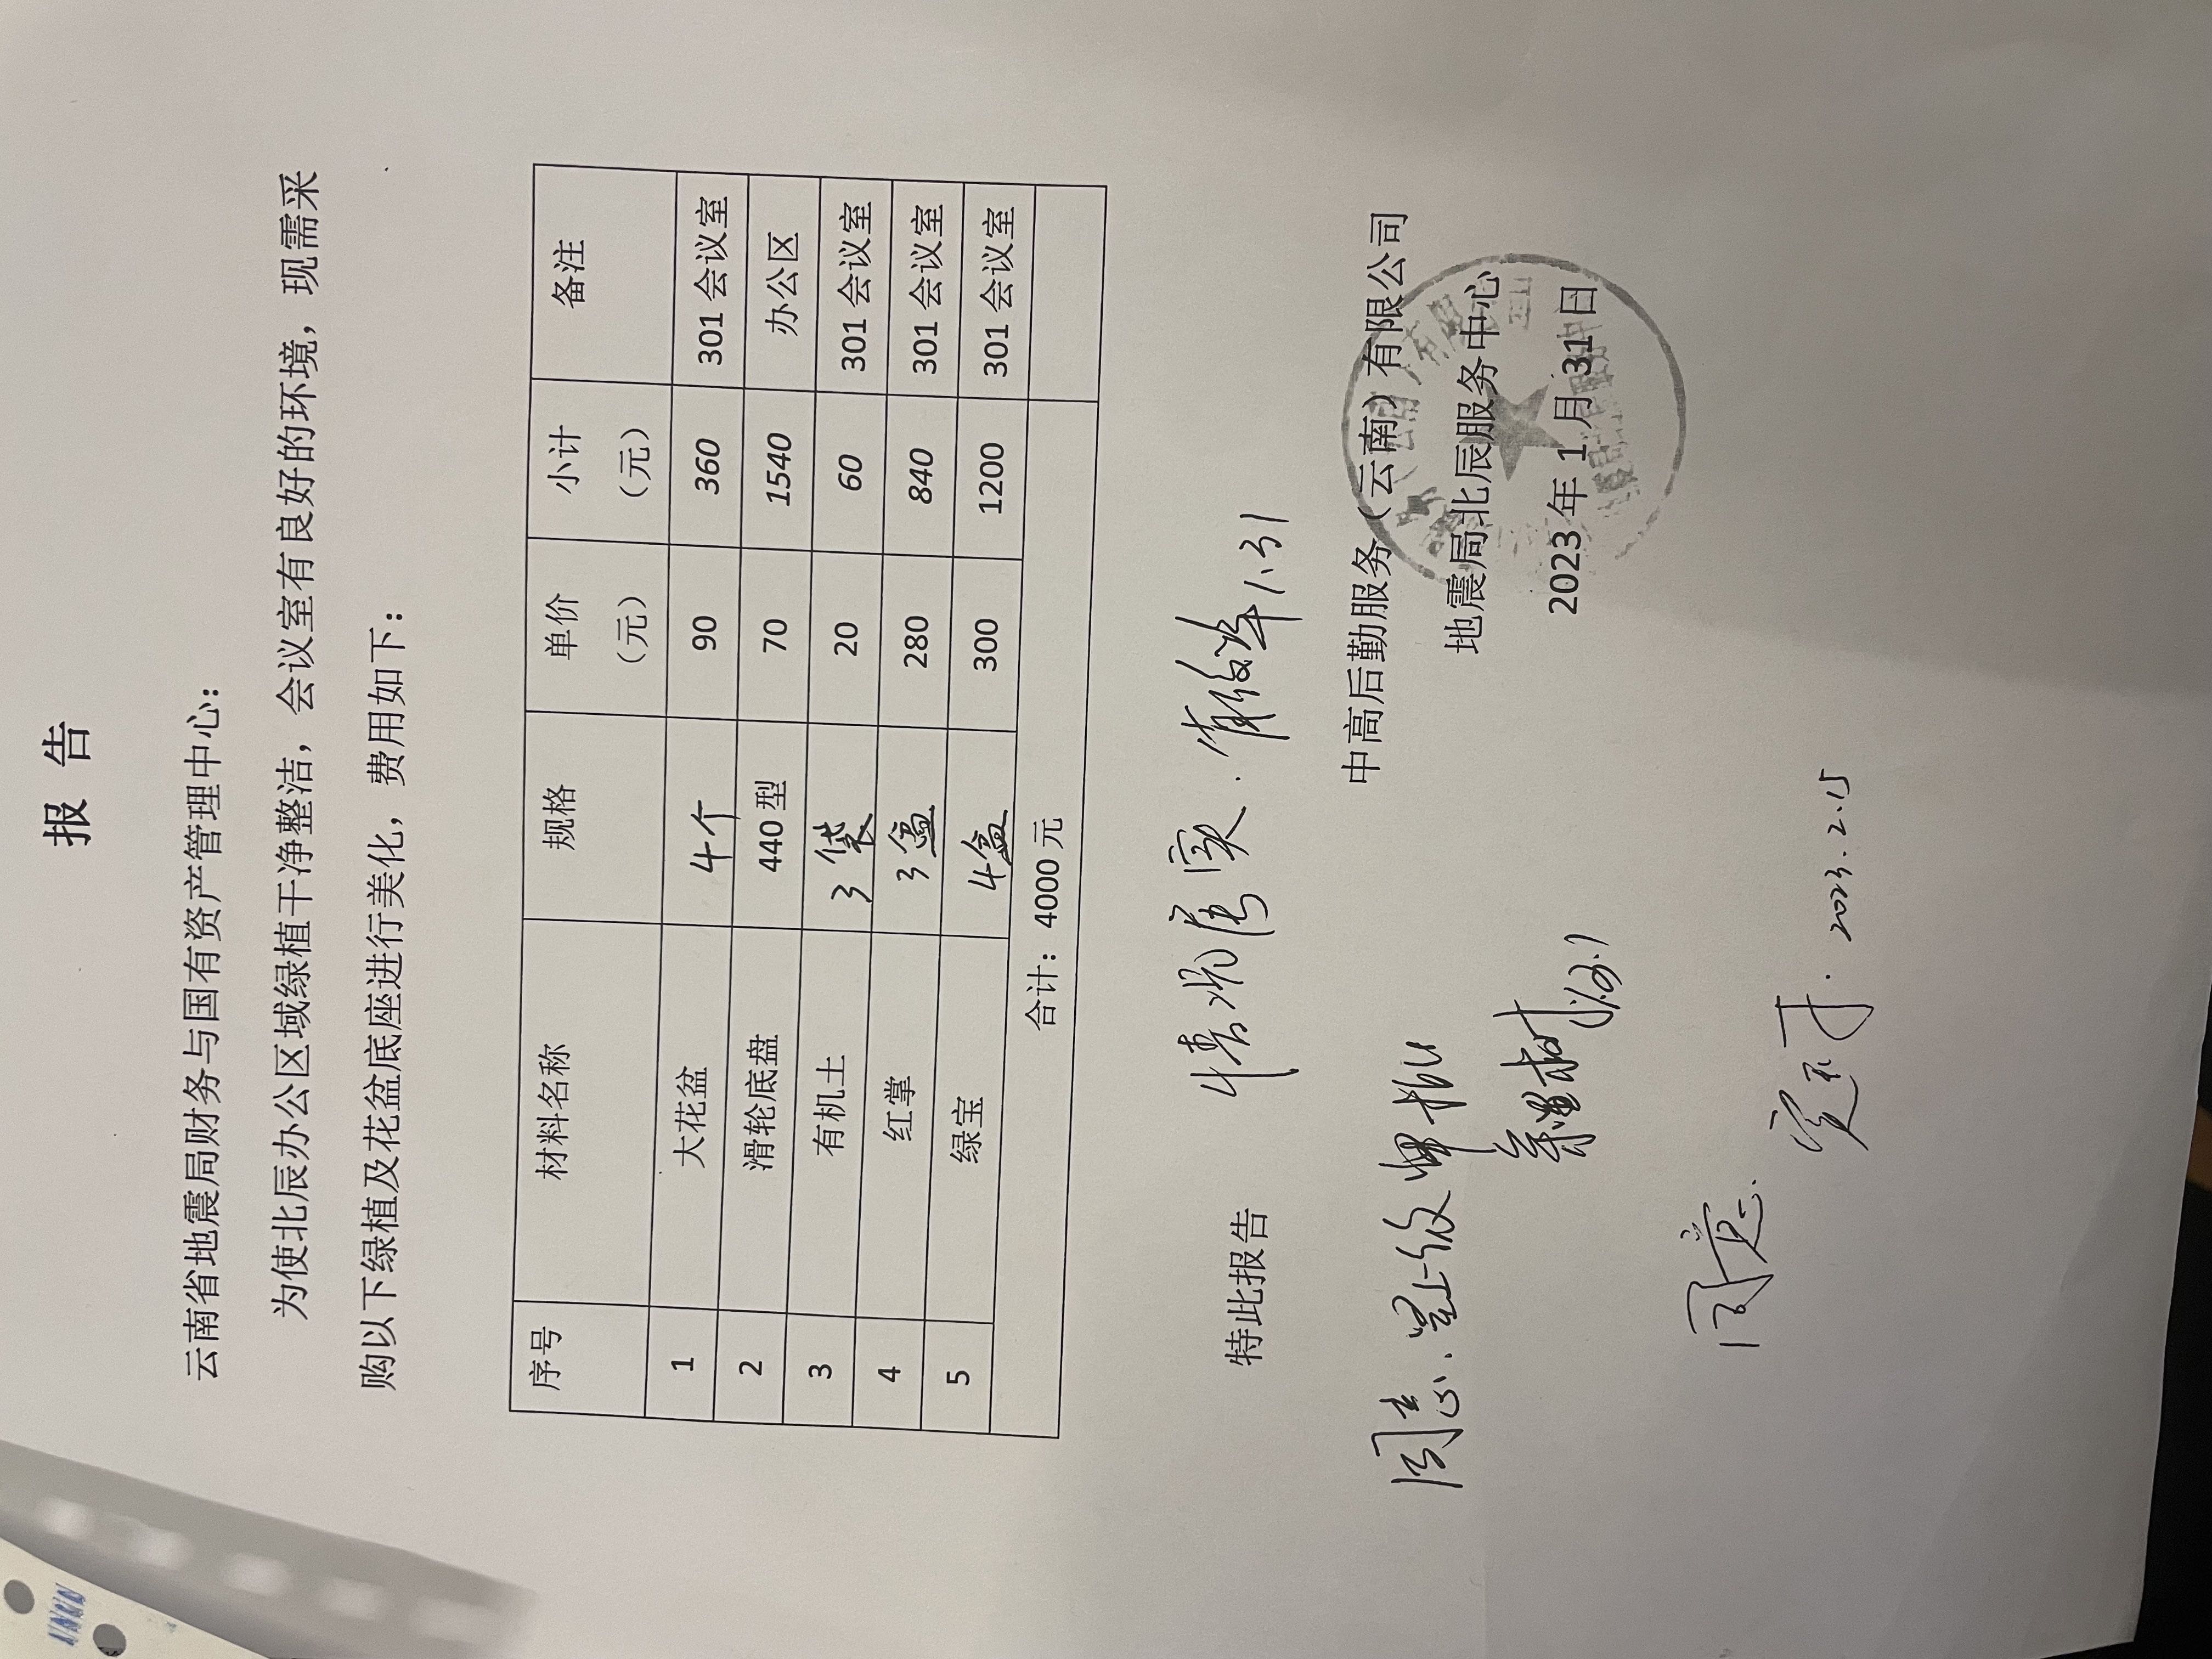 报 告
云南省地震局财务与国有资产管理中心：
为使北辰办公区域绿植干净整洁，会议室有良好的环境，现需采
购以下绿植及花盆底座进行美化，费用如下：
序号 材料名称 规格 单价（元） 小计（元） 备注
1 大花盆 4个 90 360 301 会议室
2 滑轮底盘 440 型 70 1540 办公区
3 有机土 3袋 20 60 301 会议室
4 红掌 3盆 280 840 301 会议室
5 绿宝 4盆 300 1200 301 会议室
合计：4000 元
情况属实. 1.31
特此报告
中高后勤服务（云南）有限公司
地震局北辰服务中心
2023 年 1 月 31 日
同意.
同意. 2023.2.15